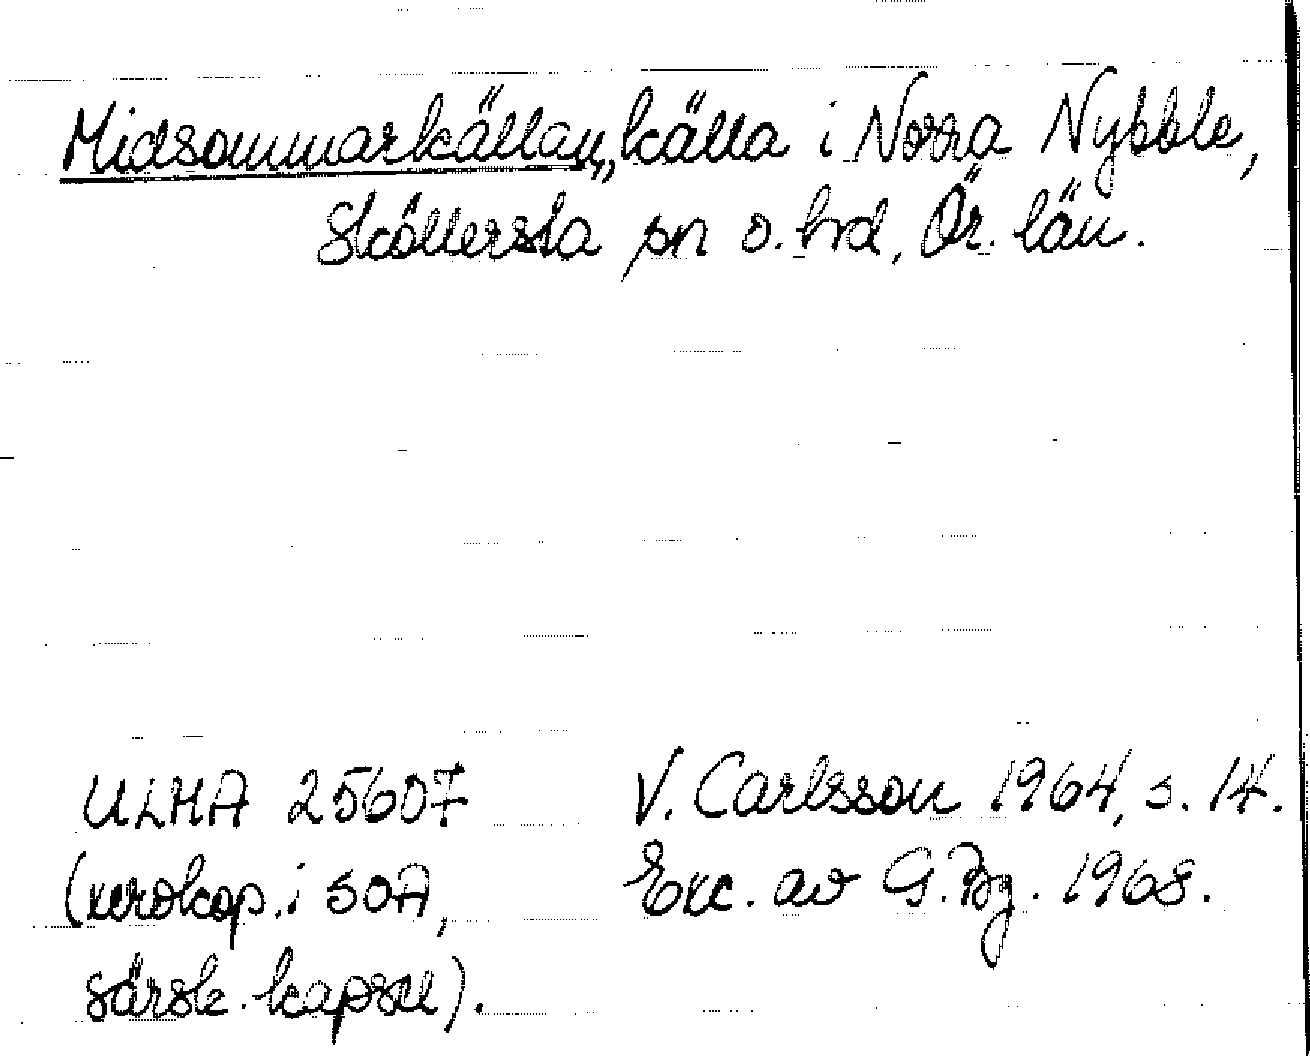 Midsommarkällan, källa i Norra Nybble,
Sköllersta sn o. hd, Ör. län.
ULMA 25607
(xerokop. i SOA,
särsk. kapsel).
V. Carlsson 1964, s. 14.
Exc. av G. Bg. 1968.